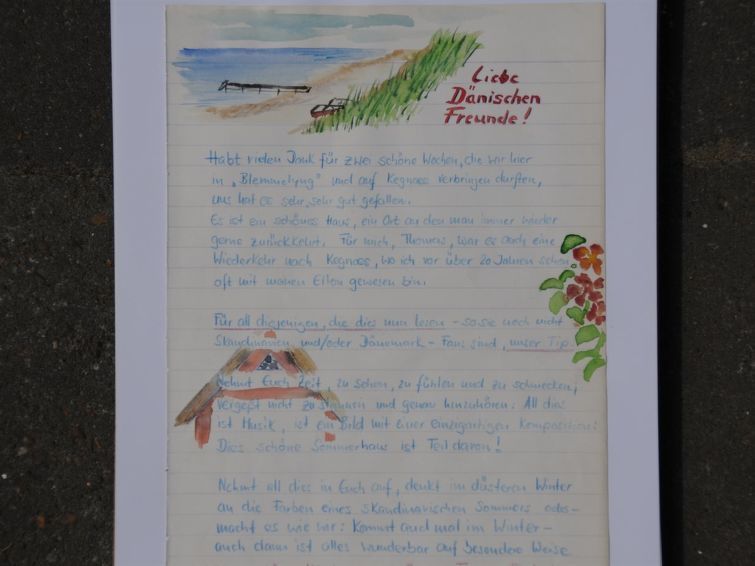 Liebe
Dänischen
Freunde!
Habt vielen Dank für zwei schöne Wochen, die wir hier
in „Blommelyng" und auf Kegnaes verbringen durften,
uns hat es sehr, sehr gut gefallen.
Es ist ein schönes Haus, ein Ort an den man immer wieder
gerne zurückkehrt. Für mich, Thomas, war es auch eine
Wiederkehr nach Kegnaes, wo ich vor über 20 Jahren schon
oft mit meinen Eltern gewesen bin.
Für all diejenigen, die dies nun lesen – so sie noch nicht
Skandinavien und/oder Dänemark - Fans sind, unser Tip
Nehmt Euch Zeit, zu sehen, zu fühlen und zu schmecken,
vergeßt nicht zu staunen und genau hinzuhören: All dies
ist Musik, ist ein Bild mit einer einzigartigen Komposition:
Dies schöne Sommerhaus ist Teil davon!
Nehmt all dies in Euch auf, denkt im düsteren Winter
an die Farben eines skandinavischen Sommers oder –
macht es wie wir: Kommt auch mal im Winter –
auch dann ist alles wunderbar auf besondere Weise